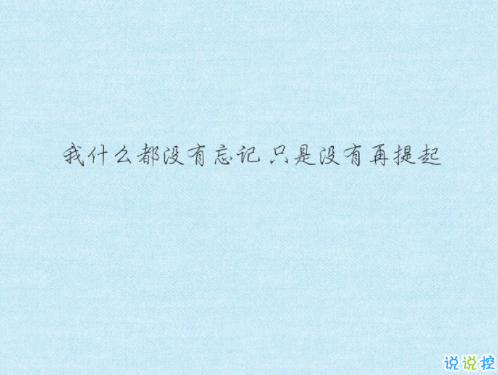 我什么都没有忘记 只是没有再提起
说说控